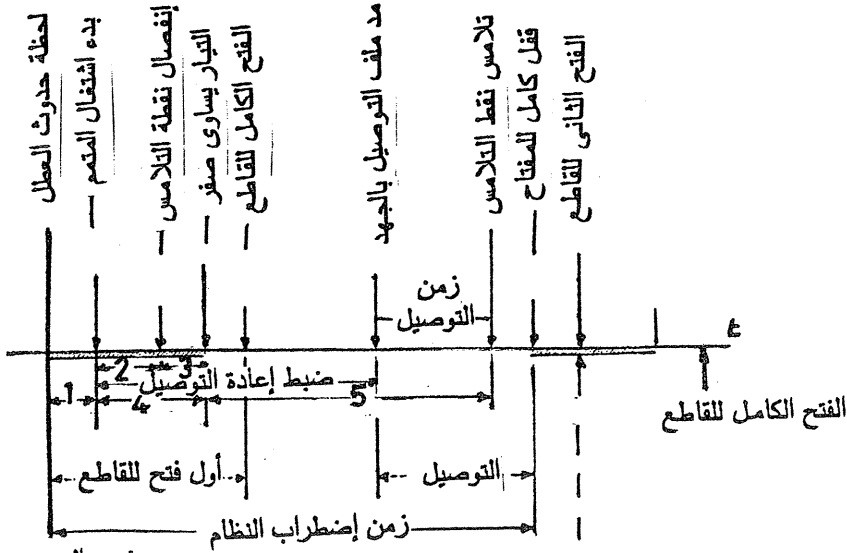 لحظة حدوث العطل
بدء اشتغال المتمم
إنفصال نقطة التلامس
التيار يساوى صفر
الفتح الكامل للقاطع
مد ملف التوصيل بالجهد
تلامس نقط التلامس
قفل كامل للمفتاح
الفتح الثانى للقاطع
زمن
التوصيل
t
2 3
ضبط إعادة التوصيل
1 4 5
الفتح الكامل للقاطع
أول فتح للقاطع
التوصيل
زمن إضطراب النظام